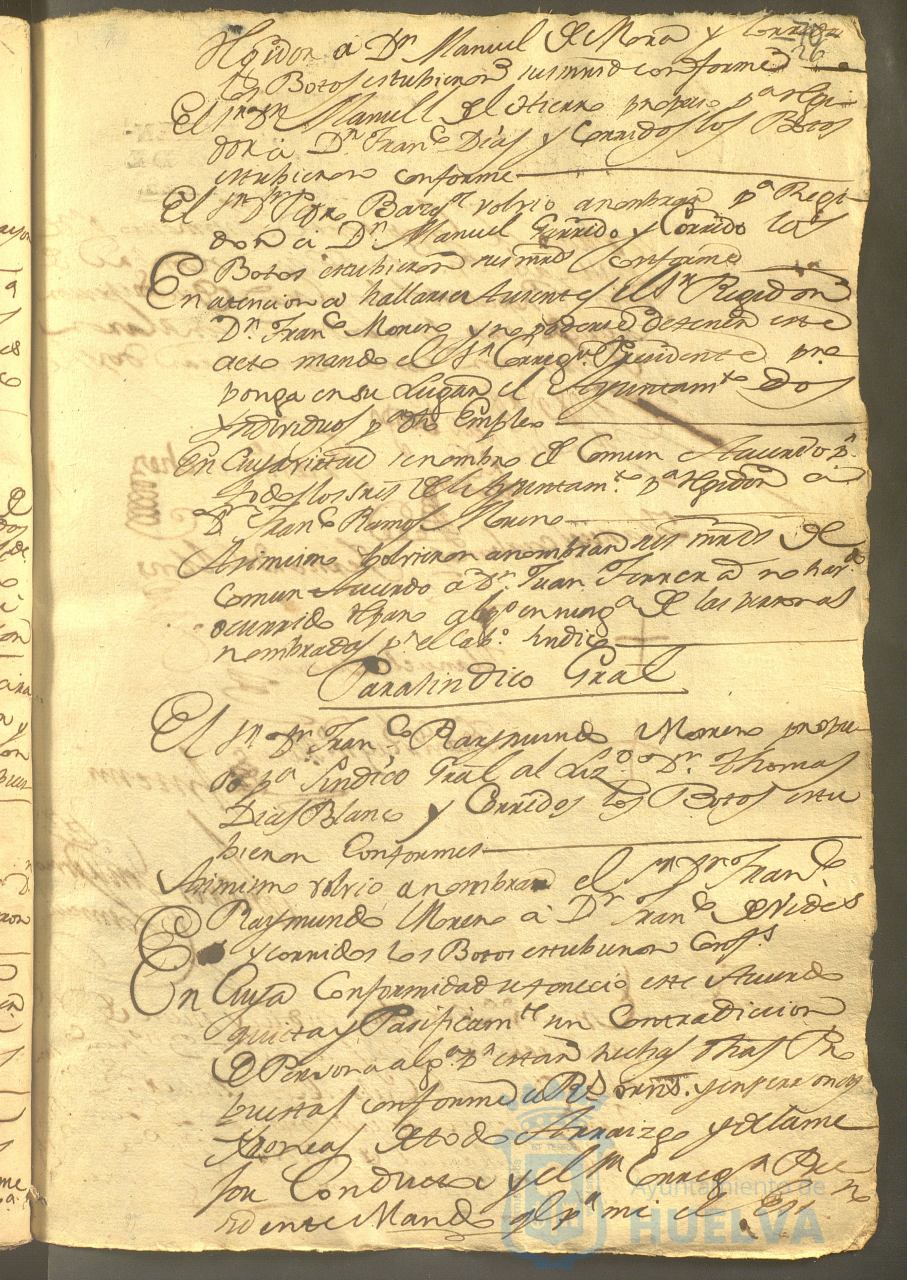 Rexidor a Dn Manuel de Mora y Corridos
los Botos estubieron sus mrds conforme
El sr Dn Manuel del Hierro propuso pa Regi-
dor a Dn Franco Dias y Corridos los Botos
estubieron conforme
El sr Dn Pedro volvio a nombrar pa Regi
dor a Dn Manuel Garrido y Corrido los
Botos estubieron sus mrds conforme
En atencion a hallarse Ausente el Sr Regidor
Dn Franco Moreno y no poderse detener este
acto mando el Sr Corregor Presidente pro
ponga en su Lugar el Ayuntamto Dos
Yndividuos pa dho Empleo
En Cuya virtud se nombro de Comun Acuerdo pr
todos los sres del Ayuntamto pa Rexidor a
Dn Franco Ramos Moreno
Asimismo bolvieron a nombrar sus mrds de
Comun Acuerdo a Dn Juan Ferrera
ocurrido reparo algo en ninga de las personas
nombradas pr el Cabo Sindico
Para Sindico Gral
El sr Dn Franco Raymundo Moreno propu
so pa Sindico Gral al Lizdo Dn Thomas
Dias Blanco y Corridos los Botos estu
bieron Conformes
Asimismo volvio a nombrar el sr Dn Franco
Raymundo Moreno a Dn Franco de Vides
y corridos los Botos estubieron Confs
En Cuya Conformidad se fenecio este Acuerdo
quieta y Pacificamte sin Contradiccion
de Persona alga pr estar hechas dhas Pro
puestas conforme a Rs orns. y en personas
de todo Arraigo
sor Conducta y el sr Corregor Presi
dente Mando qe pr mi el Esno
Ayuntamiento de
HUELVA